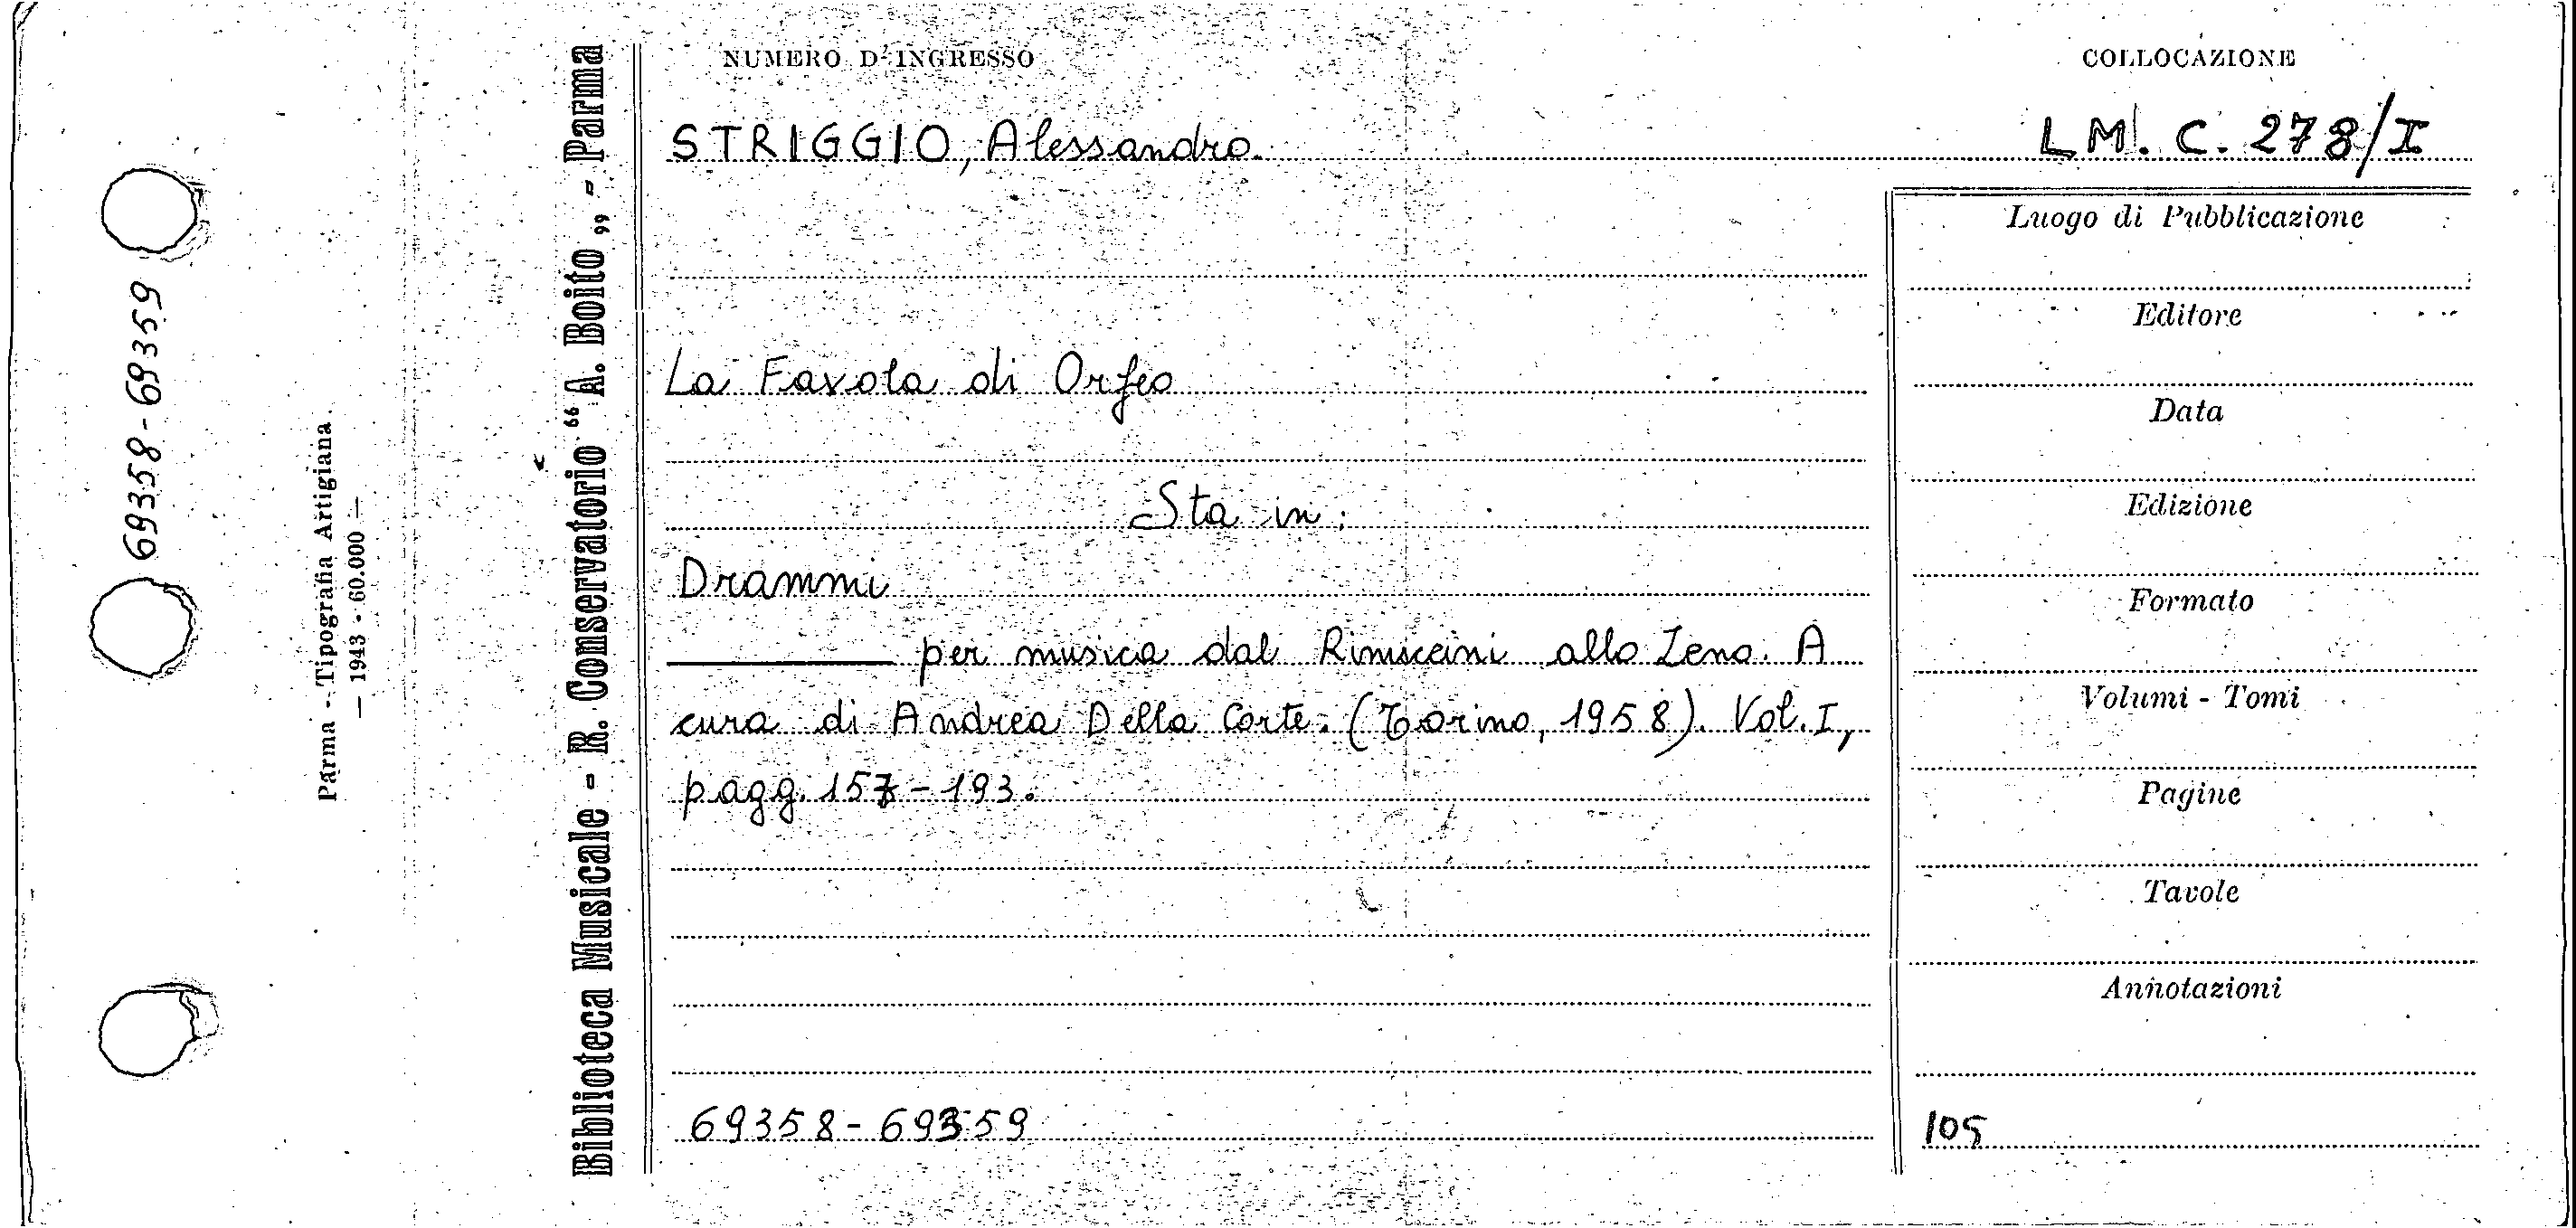 NUMERO D'INGRESSO
COLLOCAZIONE
STRIGGIO, Alessandro.
LM. C. 278/I
La Favola di Orfeo
Sta in:
Drammi
per musica dal Rinuccini allo Zeno. A
cura di Andrea Della Corte. (Torino, 1958). Vol. I,
pagg. 157-193.
69358-69359
Luogo di Pubblicazione
Editore
Data
Edizione
Formato
Volumi - Tomi
Pagine
Tavole
Annotazioni
105
Biblioteca Musicale - R. Conservatorio “A. Boito„ - Parma
Parma - Tipografia Artigiana
— 1943 - 60.000 —
69358-69359